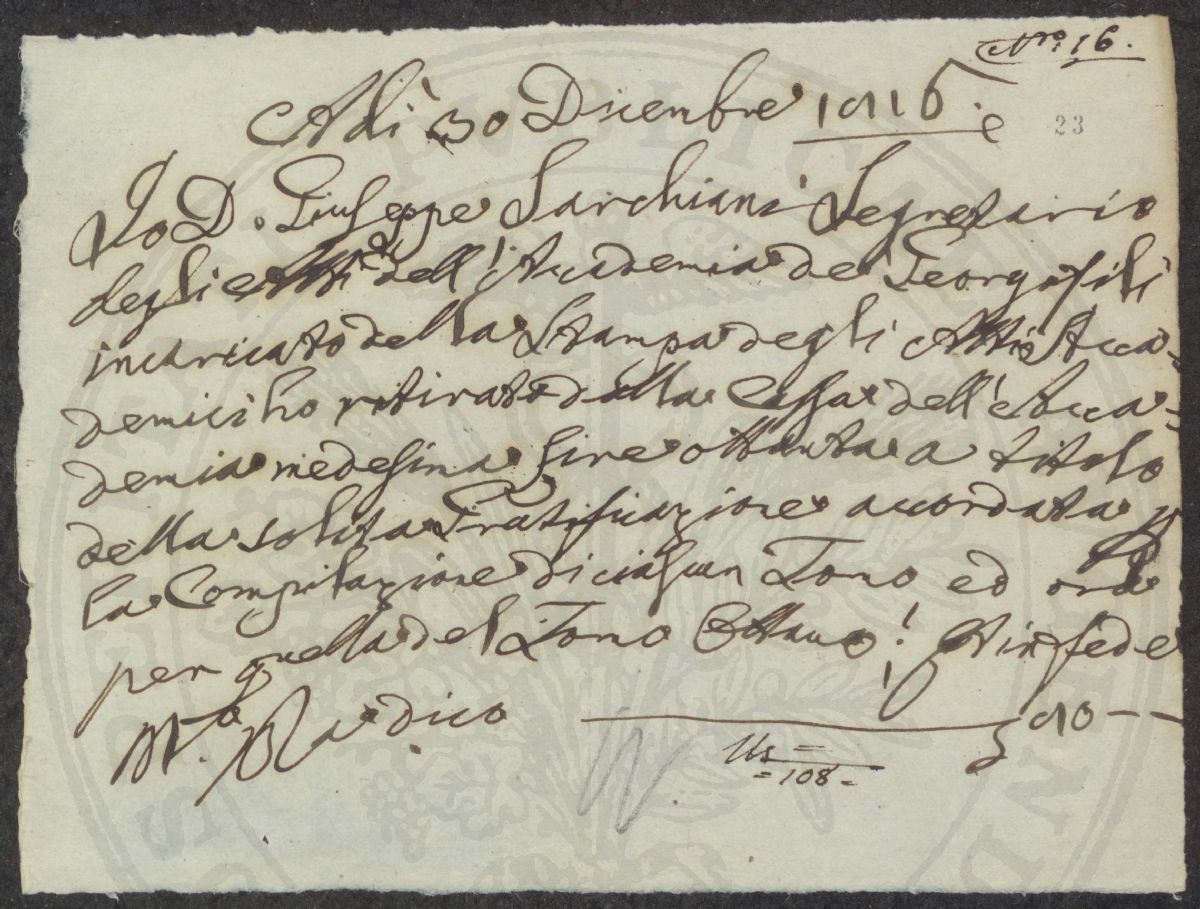 Nro. 16.
Adì 30 Dicembre 1816.
23
Io D. Giuseppe Sarchiani Segretario
degli Atti dell'Accademia de' Georgofili
incaricato della Stampa degli Atti Acca=
demici ho ritirato dalla Cassa dell'Acca=
demia medesima Lire ottanta a titolo
della solita Gratificazione accordata p
la Compilazione di ciascun Tomo ed ora
per quella del Tomo Ottavo! in fede
M.o dico 80 —
= 108 =